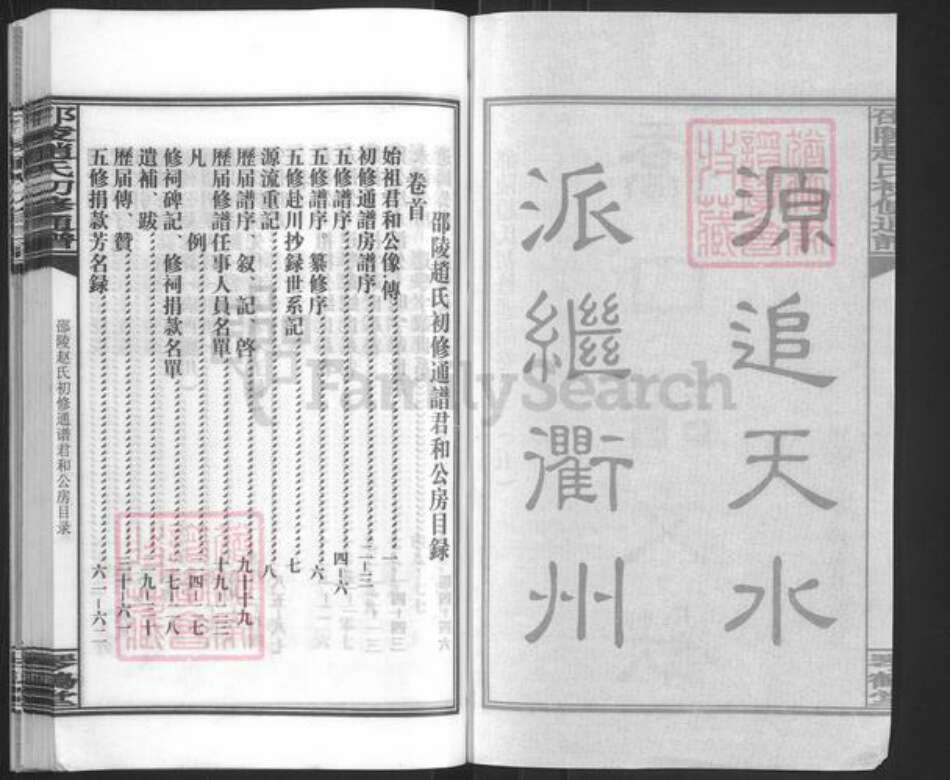 源追天水
派繼衢州
邵陵趙氏初修通譜君和公房目録
卷首
始祖君和公像、傳 一
初修通譜房譜序 二－三
五修譜序 四－六
五修譜序 纂修序 六
五修赴川抄録世系記 七
源流重記 八
歷屆譜序、叙、記、啓
歷屆修譜任事人員名單
凡 例
修祠碑記、修祠捐款名單
遺補、跋
歷屆傳、贊 三十－六一
五修捐款芳名録 六一－六二
邵陵趙氏初修通譜
邵陵赵氏初修通谱君和公房目录
琴鶴堂
FamilySearch